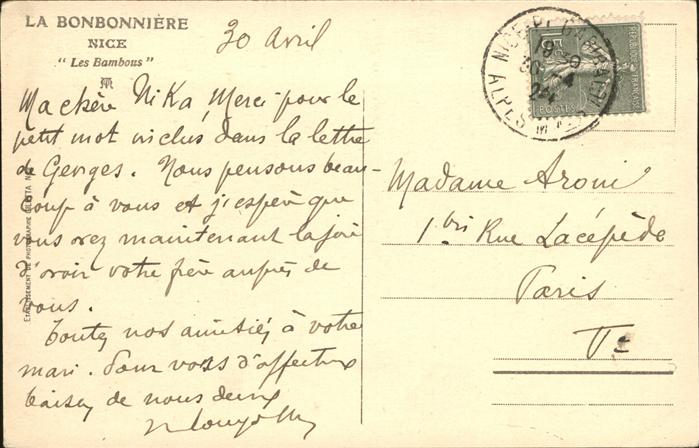 LA BONBONNIÈRE
NICE
"Les Bambous"
30 Avril
Ma chère Nika, Merci pour le
petit mot inclus dans la lettre
de Georges. Nous pensons beau-
coup à vous et j'espère que
vous avez maintenant la joie
d'avoir votre père auprès de
vous.
Toutes nos amitiés à votre
mari. Pour vous d'affectueux
baisers de nous deux
Madame Aroni
1 bis Rue Lacépède
Paris
Ve
ÉTABLISSEMENT DE PHOTOGRAPHIE
NICE
ALPES
REPUBLIQUE FRANÇAISE
15c
POSTES